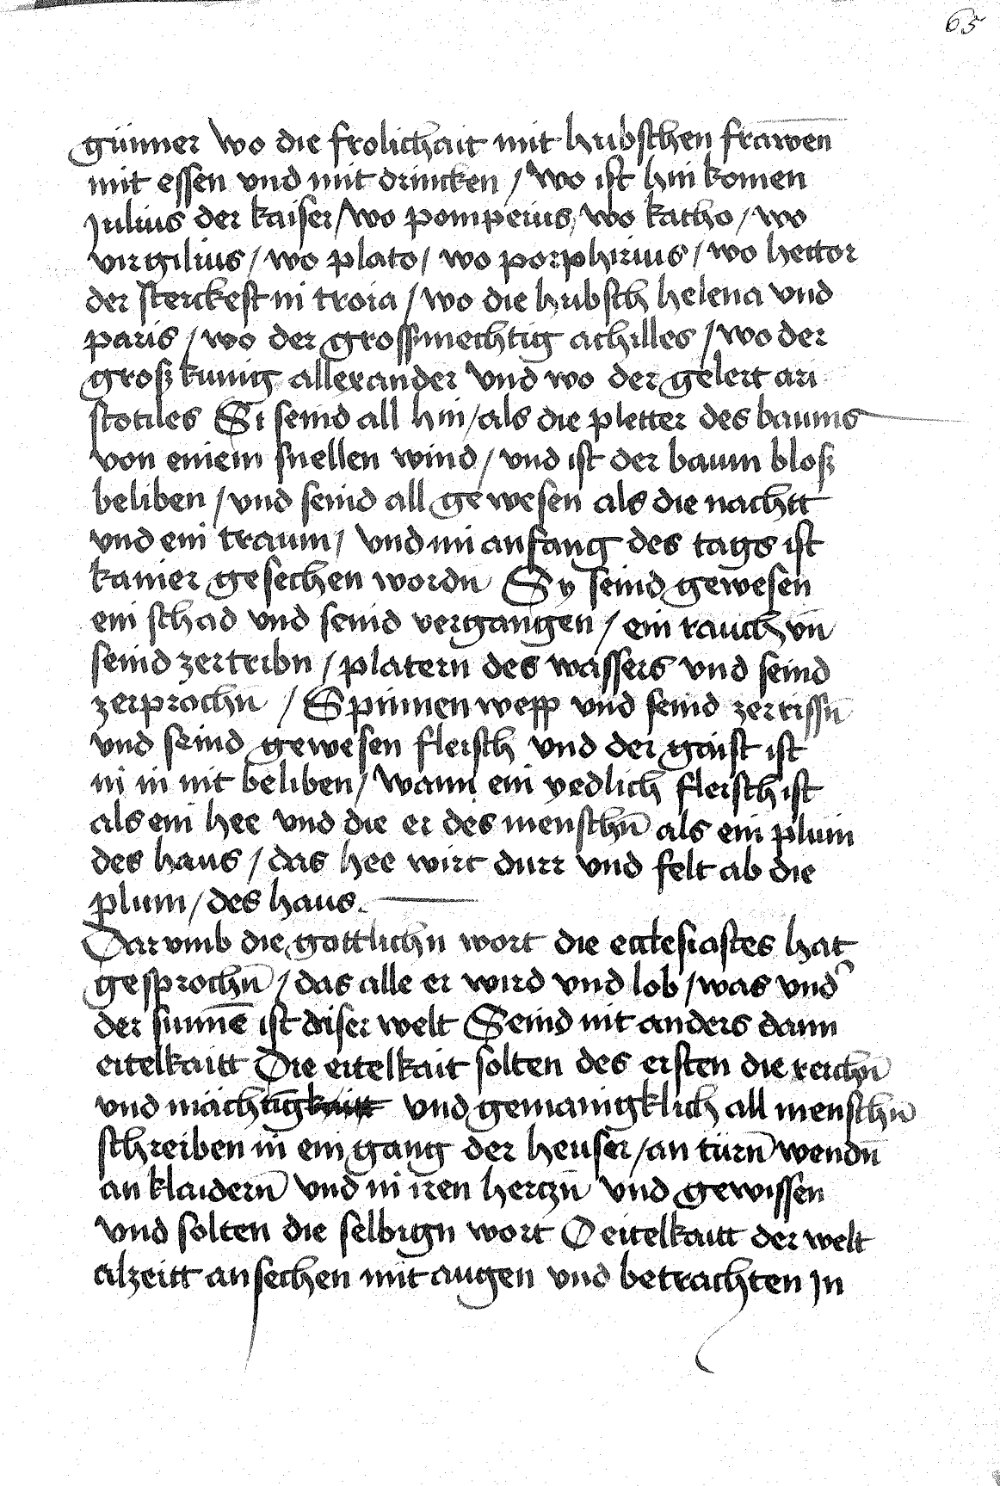 65
günner wo die frolichait mit hübschen frawen
mit essen vnd mit drincken / wo ist hin komen
Julius der kaiser / wo pompeius / wo katho / wo
virgilius / wo plato / wo porphirius / wo hector
der sterckest in troia / wo die hubsch helena vnd
paris / wo der grossmechtig achilles / wo der
groß kunig allexander vnd wo der gelert ari
stotiles Si seind all hin / als die pletter des baums
von einem snellen wind / vnd ist der baum bloß
beliben / vnd seind all gewesen als die nachtt
vnd ein traum / vnd im anfang des tags ist
kainer gesechen wordn Sy seind gewesen
ein schad vnd seind vergangen / ein rauch vn̄
seind zertribn / platern des wassers vnd seind
zerprochn̄ / Spinnen wepp vnd seind zerrissn̄
vnd seind gewesen fleisch vnd der gaist ist
in in nit beliben / wann ein yedlich fleisch ist
als ein hee vnd die er des menschn̄ als ein plum
des haus / das hee wirt durr vnd felt ab die
plum / des haus.
Dar vmb die gottlichn wort die ecclesiastes hat
gesprochn̄ / das alle er wird vnd lob / was vnd᾽
der sunnē ist diser welt Seind nit anders dann
eitelkaitt Die eitelkait solten des ersten die reichn̄
vnd mächtigkaitt vnd gemainigklich all menschn̄
schreiben in ein gang der heuser / an türn̄ wendn̄
an klaidern̄ vnd in iren hertzn̄ vnd gewissen
vnd solten die selbign wort O eitelkaitt der welt
alzeitt ansechen mit augen vnd betrachten Jn